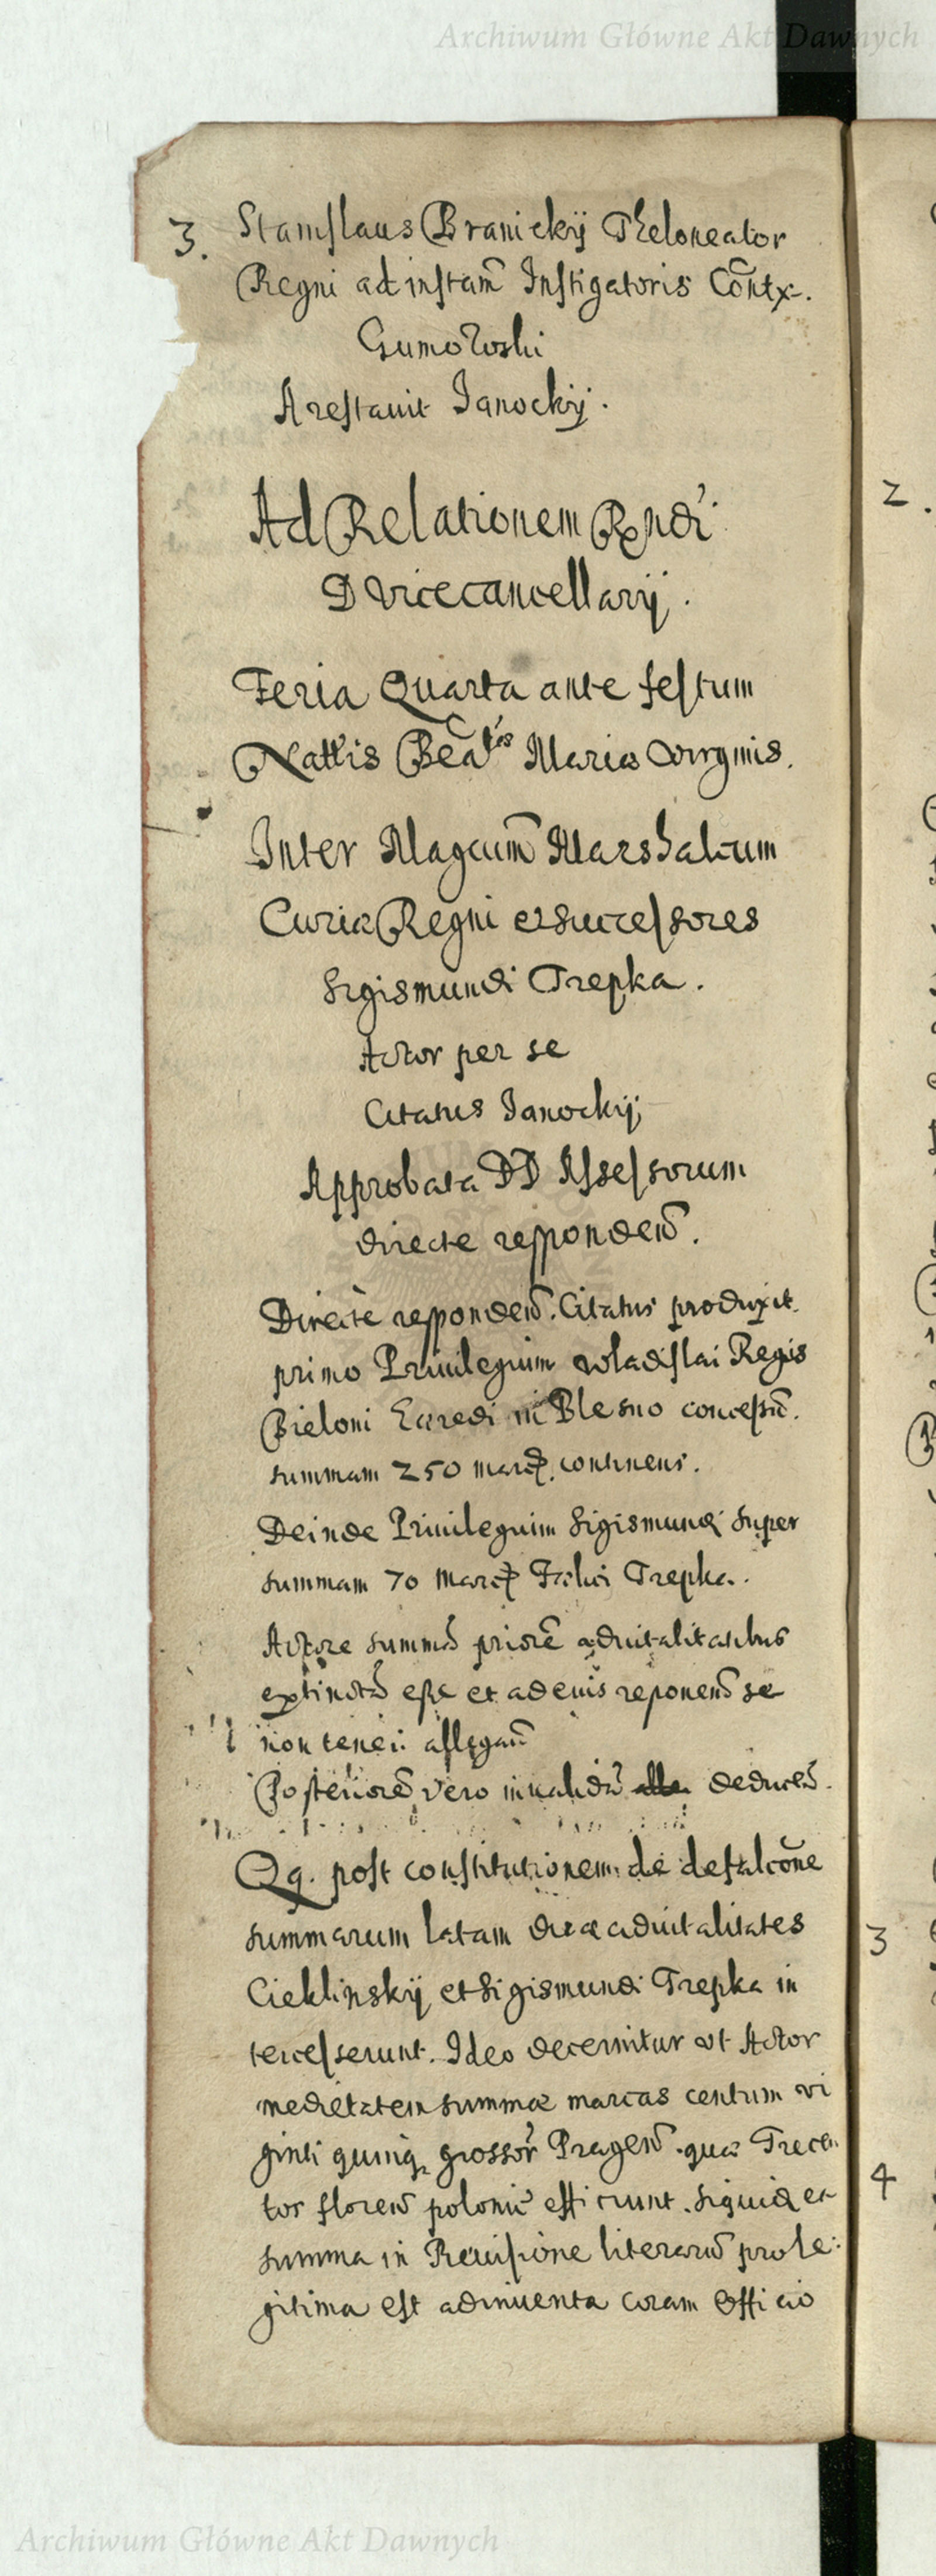 Archiwum Główne Akt Dawnych
3. Stanislaus Branickij Theloneator
Regni ad instam Instigatoris Contx.
Gumowski
Arestavit Janockij.
Ad Relationem Rndi
D Vicecancellarij.
Feria Quarta ante festum
Nattis Beatæ Mariæ Virginis.
Inter Magcum Marshalcum
Curiæ Regni et successores
Sigismundi Trepka.
Actor per se
Citatus Janockij
Approbata DD Assessorum
directe responden.
Directe responden. Citatus produxit
primo Privilegium Wladislai Regis
Bieloni heredi in Blesno concessu.
summam 250 marc. continens.
Deinde Privilegium Sigismundi super
summam 70 marc Felici Trepka.
Actore summa priore advitalitatibus
extincta esse et ad eius reponen se
non teneri allegan
Posteriore vero invalida deducen.
Qq. post constitutionem de defalcone
summarum latam duæ advitalitates
Cieklinskij et Sigismundi Trepka in
tercesserunt. Ideo decernitur ut Actor
medietatem summæ marcas centum vi
ginti quinq grossor Pragen. quæ Trecen
tos floren polon efficiunt. siquid ea
summa in Revisione literaru pro le:
gitima est adinventa coram Officio
2.
3
4
Archiwum Główne Akt Dawnych